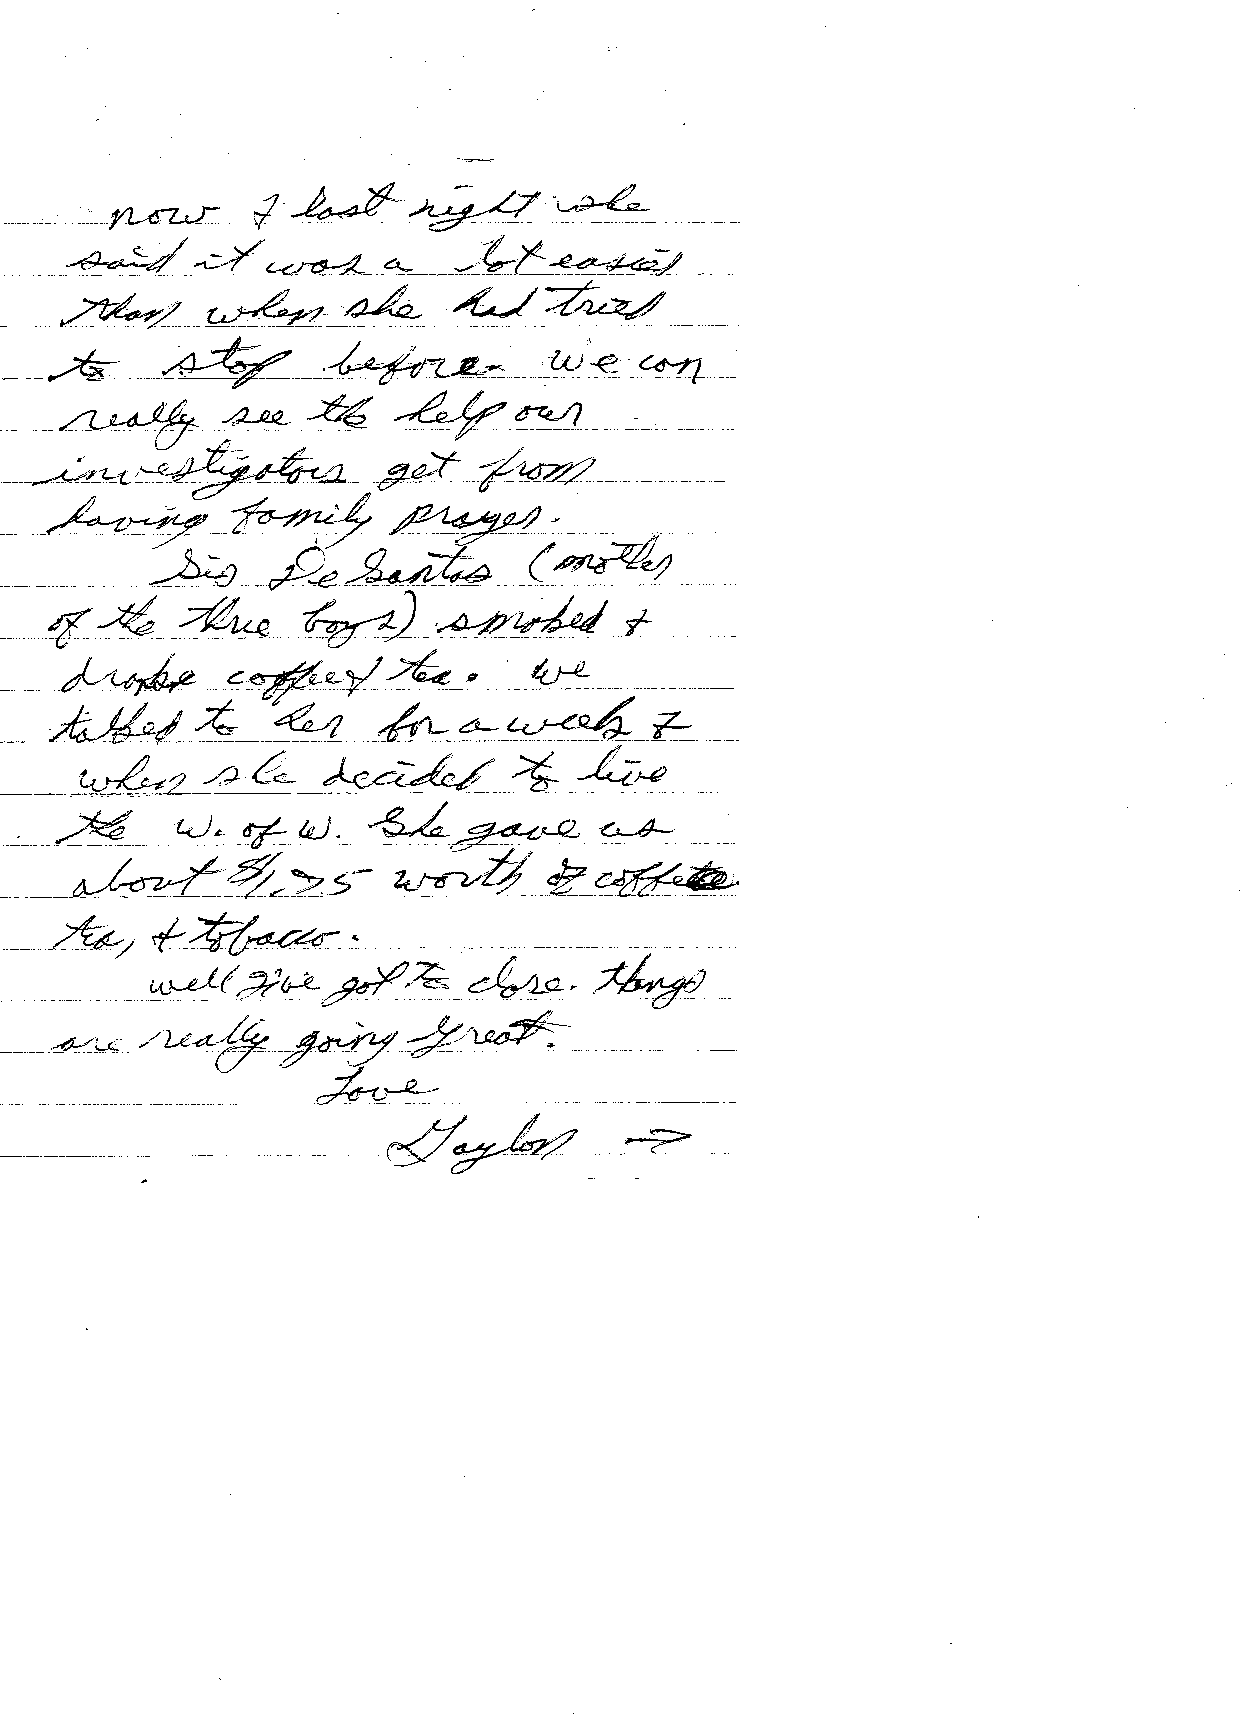 now & last night she
said it was a lot easier
than when she had tried
to stop before. we can
really see the help our
investigators get from
having family prayer.
Sis De Santas (mother
of the three boys) smoked &
drank coffee & tea. we
talked to her for a week &
when she decided to live
the W. of W. She gave us
about $1.75 worth of coffee
tea, & tobacco.
well I've got to close. things
are really going great.
Love
Gaylon →